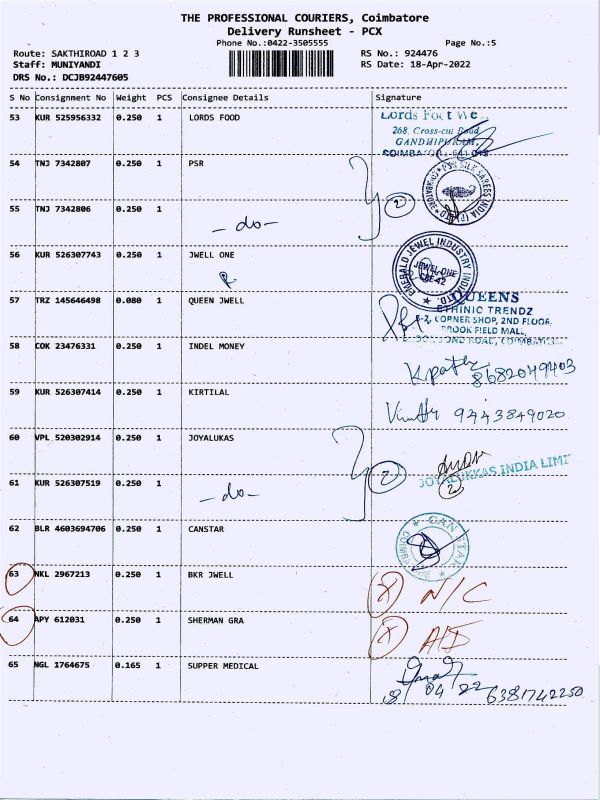 THE PROFESSIONAL COURIERS, Coimbatore
Delivery Runsheet - PCX
Phone No.:0422-3505555 Page No.:5
Route: SAKTHIROAD 1 2 3 RS No.: 924476
Staff: MUNIYANDI RS Date: 18-Apr-2022
DRS No.: DCJB92447605
S No Consignment No Weight PCS Consignee Details Signature
53 KUR 525956332 0.250 1 LORDS FOOD
Lords
268, Cross-cut Road
GANDHIPURAM,
54 TNJ 7342807 0.250 1 PSR
2
PSR SILK SAREES INDIA (P) COIMBATORE
55 TNJ 7342806 0.250 1
- do -
56 KUR 526307743 0.250 1 JWELL ONE
EMERALD JEWEL INDUSTRY INDIA LTD.
JEWEL ONE
CBE-42
57 TRZ 145646498 0.080 1 QUEEN JWELL
QUEENS
ETHINIC TRENDZ
CORNER SHOP, 2ND FLOOR,
BROOK FIELD MALL,
58 COK 23476331 0.250 1 INDEL MONEY
8682049403
59 KUR 526307414 0.250 1 KIRTILAL
9443849020
60 VPL 520302914 0.250 1 JOYALUKAS
2
JOYALUKKAS INDIA LIMI
2
61 KUR 526307519 0.250 1
- do -
62 BLR 4603694706 0.250 1 CANSTAR
CAN STAR
63 NKL 2967213 0.250 1 BKR JWELL
X N/C
64 APY 612031 0.250 1 SHERMAN GRA
X
65 NGL 1764675 0.165 1 SUPPER MEDICAL
18 04 22 6381742250